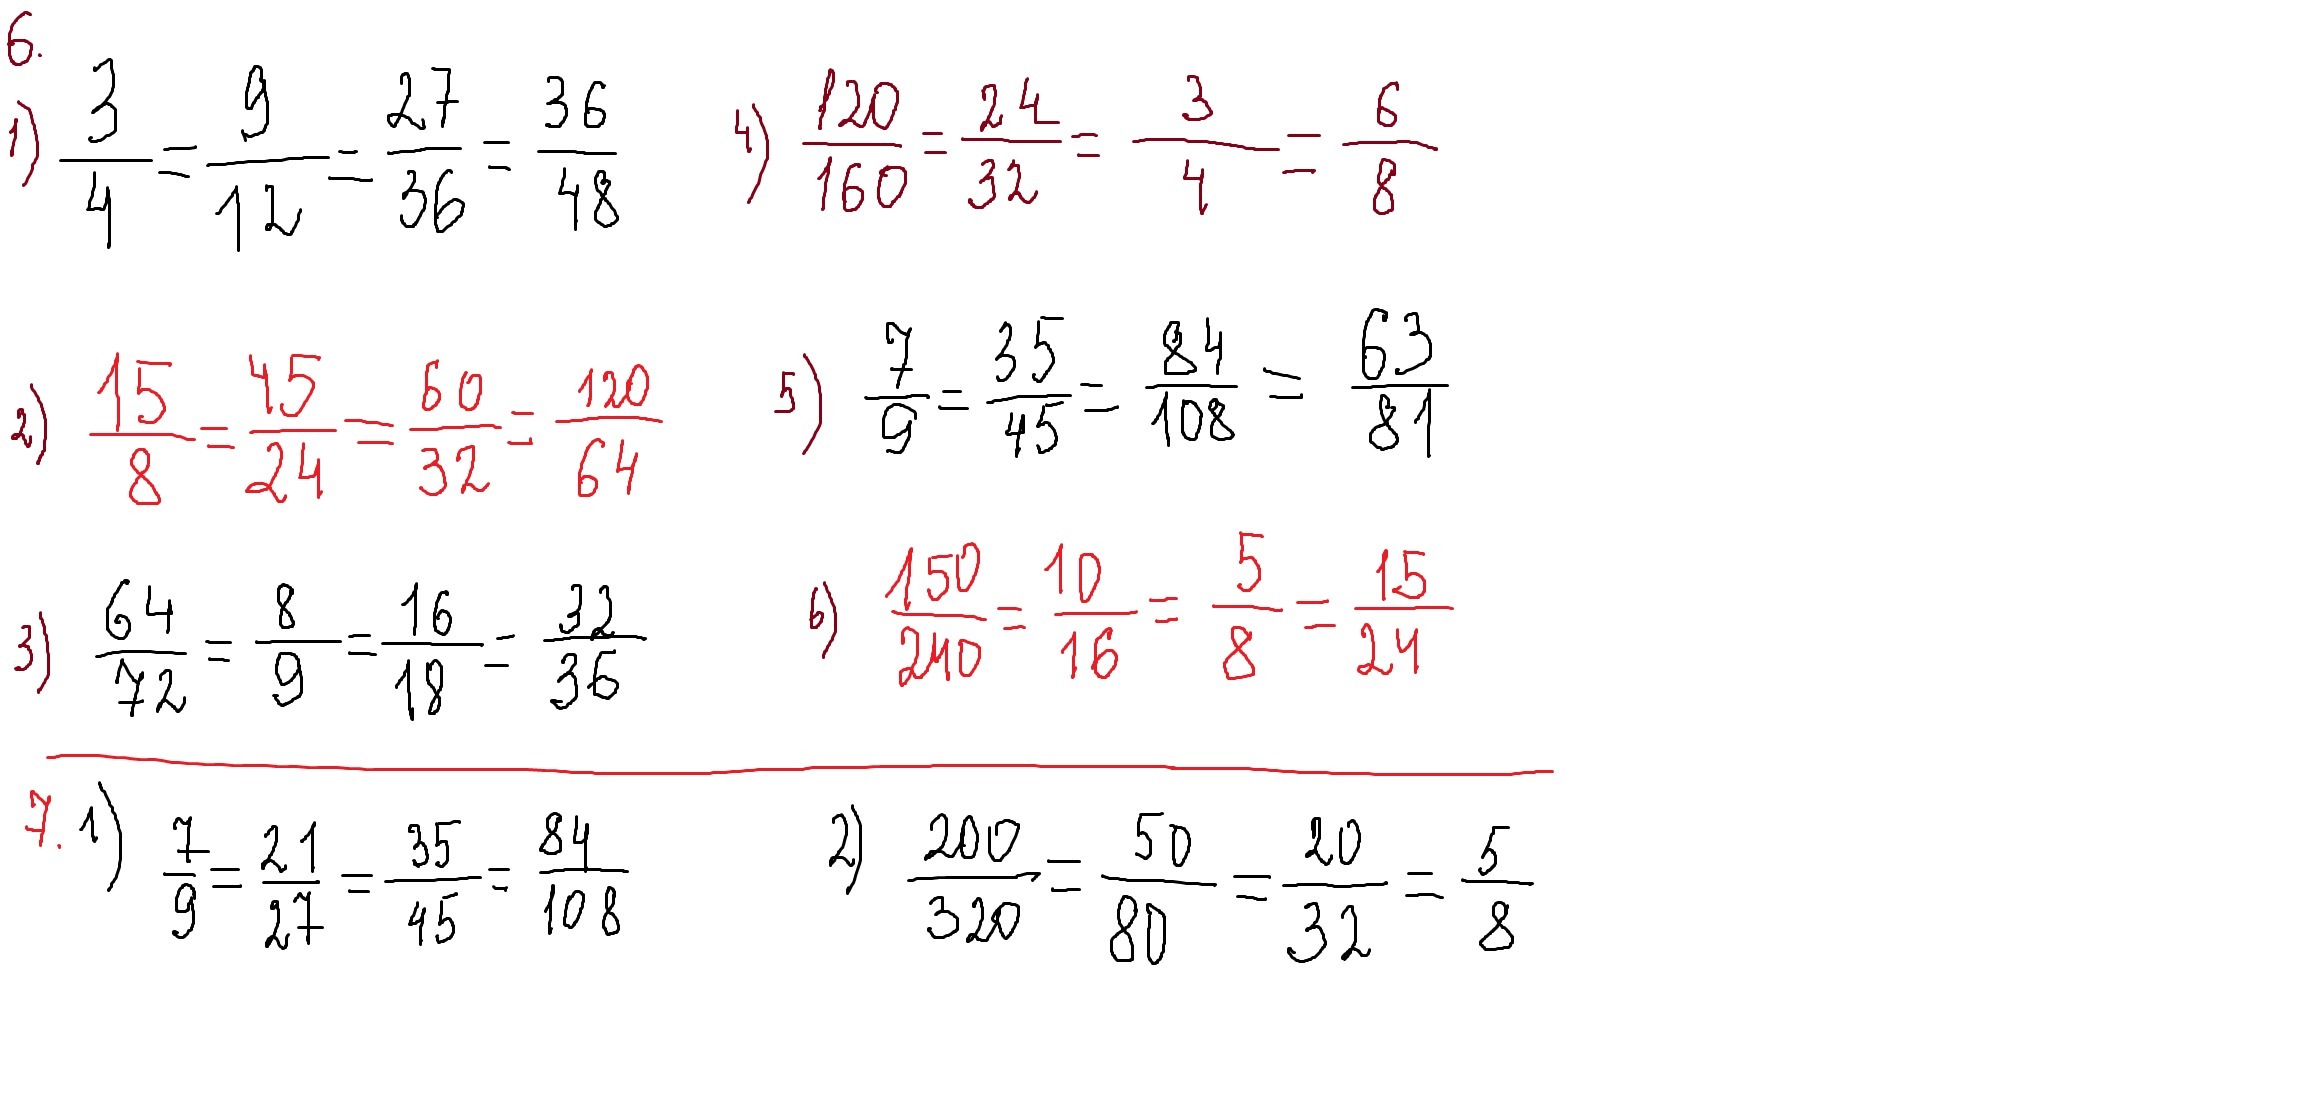 6.
1) 3/4 = 9/12 = 27/36 = 36/48
4) 120/160 = 24/32 = 3/4 = 6/8
2) 15/8 = 45/24 = 60/32 = 120/64
5) 7/9 = 35/45 = 84/108 = 63/81
3) 64/72 = 8/9 = 16/18 = 32/36
6) 150/240 = 10/16 = 5/8 = 15/24
7. 1) 7/9 = 21/27 = 35/45 = 84/108
2) 200/320 = 50/80 = 20/32 = 5/8